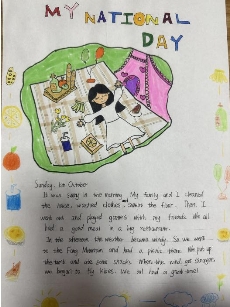 MY NATIONAL
DAY
Sunday, 1st October
It was sunny in the morning. My family and I cleaned
the house, washed clothes and swept the floor. Then I
went out and played games with my friends. We all
had a good meal in a big restaurant.
In the afternoon, the weather became windy. So we went
to the Fang Mountain and had a picnic there. We put up
the tent and ate some snacks. When the wind got stronger,
we began to fly kites. We all had a great time!